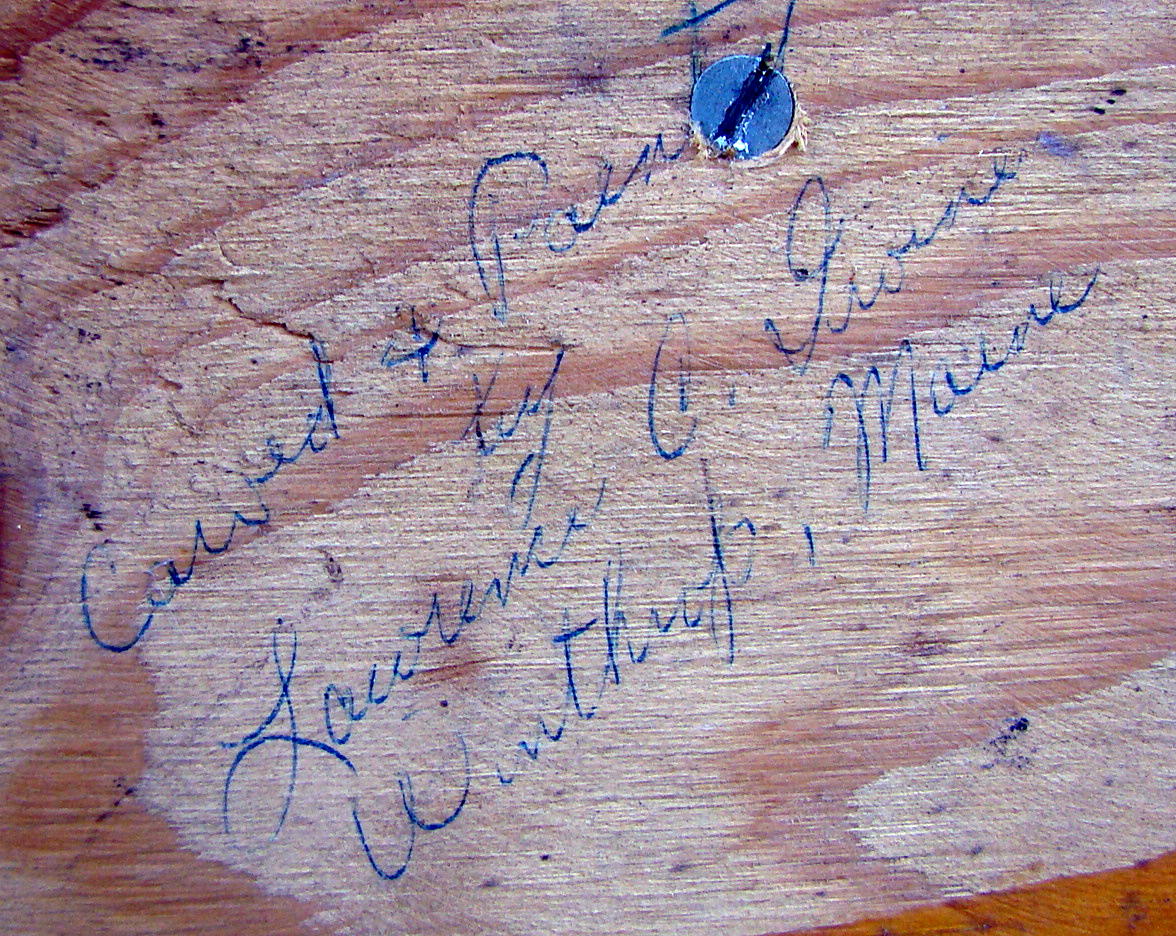 Carved & Pain
by
Lawrence C. Irvine
Winthrop, Maine